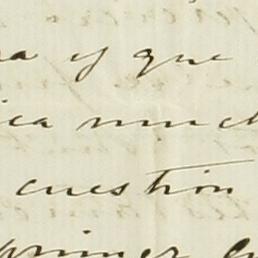 ra y que
ica much
cuestion
primer cu